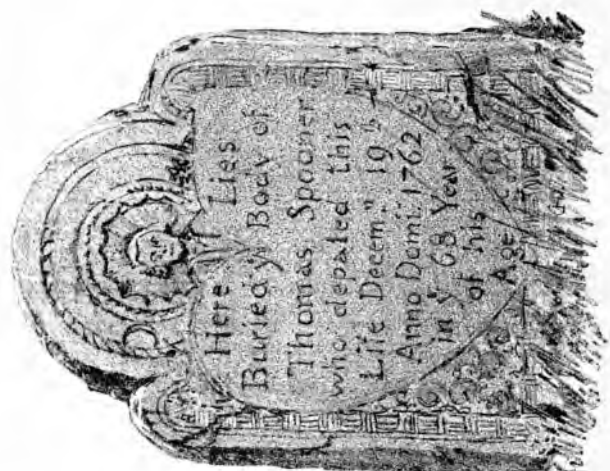 Here Lies
Buried yͤ Body of
Thomas Spooner
who depated this
Life Decem.ͬ 19 th
Anno Domi: 1762
in yͤ 68 Year
of his
Age